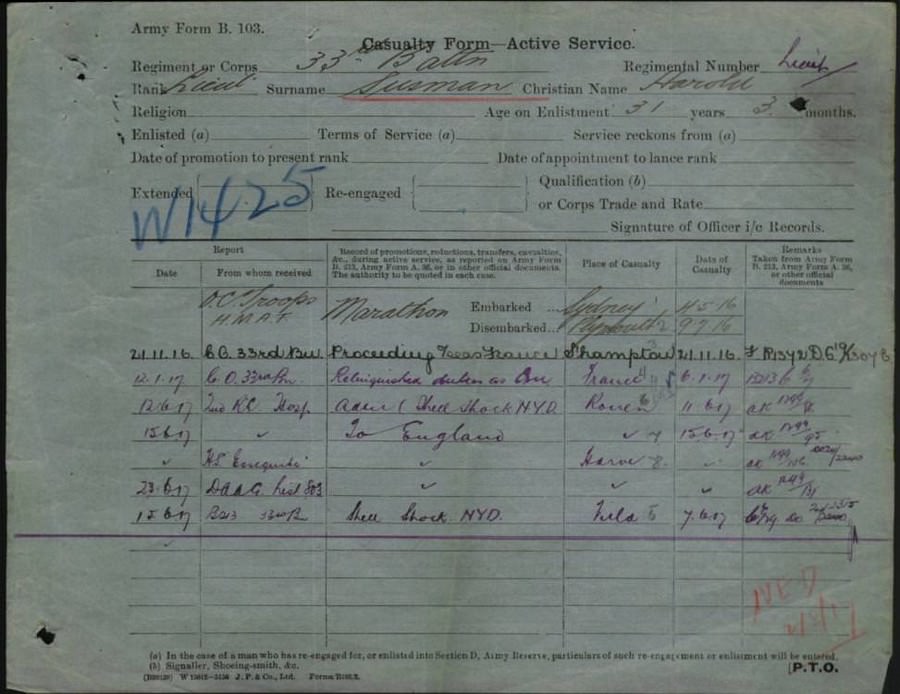 Army Form B. 103.
Casualty Form—Active Service.
Regiment or Corps 33rd Battn Regimental Number Lieut
Rank Lieut Surname Susman Christian Name Harold
Religion Age on Enlistment 31 years 3 months.
Enlisted (a) Terms of Service (a) Service reckons from (a)
Date of promotion to present rank Date of appointment to lance rank
Extended Re-engaged Qualification (b)
or Corps Trade and Rate
W1425
Signature of Officer i/c Records.
Report Record of promotions, reductions, transfers, casualties, &c., during active service, as reported on Army Form B. 213, Army Form A. 36, or in other official documents. The authority to be quoted in each case. Place of Casualty Date of Casualty Remarks Taken from Army Form B. 213, Army Form A. 36, or other official documents
Date From whom received
O.C. Troops Marathon Embarked Sydney 4.5.16
H.M.A.T. Disembarked Plymouth 9.7.16
21.11.16. C.O. 33rd Bn. Proceeding France S'hampton 21.11.16.
12.1.17 C.O. 33rd Bn. Relinquished duties as France 6.1.17 B213
12.6.17 2nd R.C. Hosp. Adm ( Shell Shock N.Y.D. Rouen 11.6.17
15.6.17 " To England " 15.6.17
" H.S. " Havre "
23.6.17 DAAG List " " "
15.6.17 B213 33rd Bn Shell Shock NYD. Field 7.6.17
(a) In the case of a man who has re-engaged for, or enlisted into Section D, Army Reserve, particulars of such re-engagement or enlistment will be entered.
(b) Signaller, Shoeing-smith, &c.
J. P. & Co., Ltd.
P.T.O.